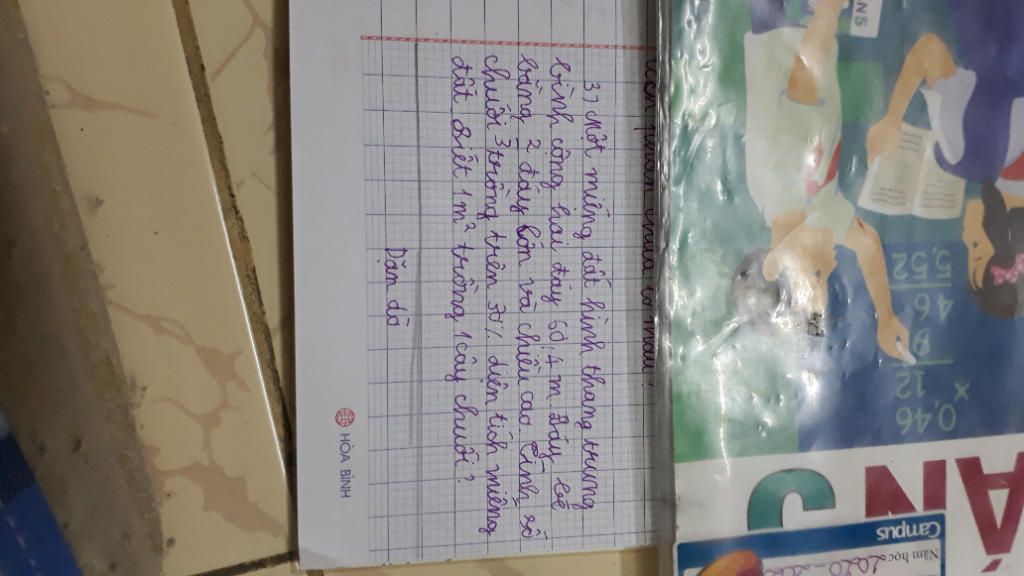 3) Một miếng đất hình thang trung
bình cộng hai đáy 60,4 m Đáy bé
bằng 2 đáy lớn và chiều cao. Tính số
chuối 3 trồng trên 30% diện tích miếng
đất biết 1 m² trồng 1 cây chuối?
Dặn dò
HÒA BÌNH
5,52
46
9
12
x
0,46
ÁN 5
Campus
Năm học 2020